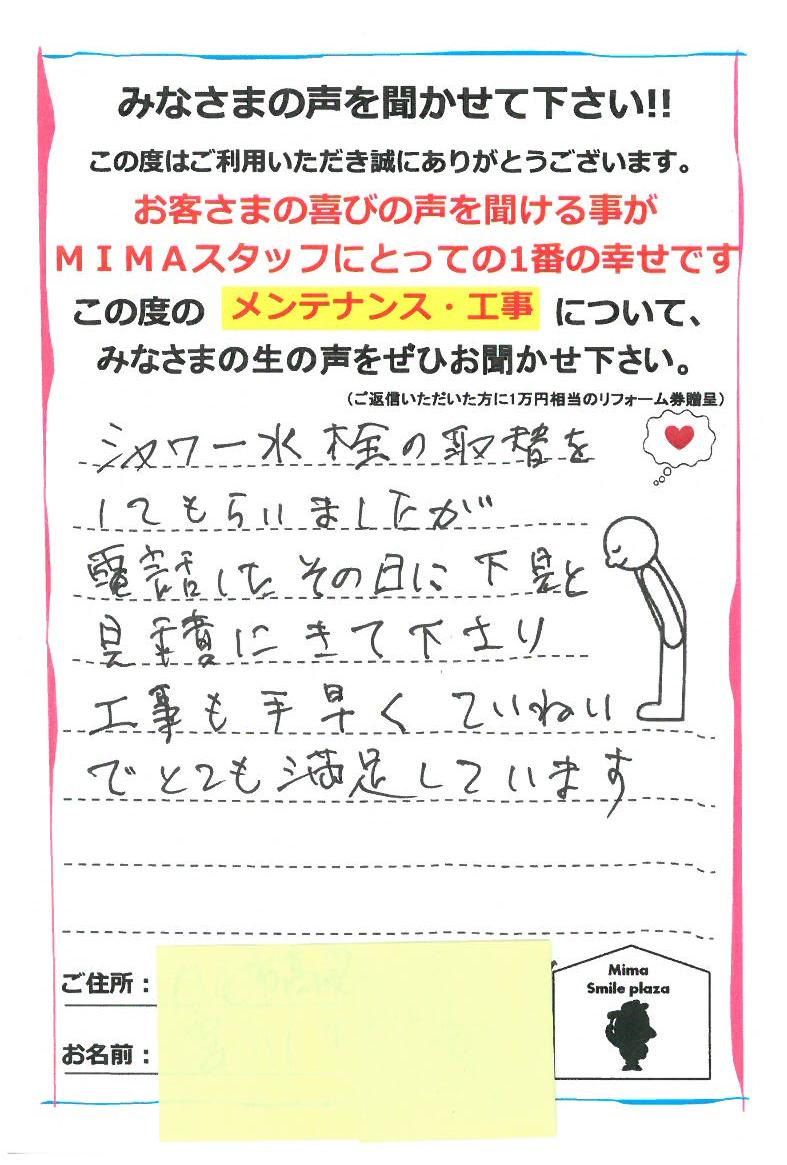 みなさまの声を聞かせて下さい!!
この度はご利用いただき誠にありがとうございます。
お客さまの喜びの声を聞ける事が
ＭＩＭＡスタッフにとっての1番の幸せです
この度の メンテナンス・工事 について、
みなさまの生の声をぜひお聞かせ下さい。
(ご返信いただいた方に1万円相当のリフォーム券贈呈)
シャワー水栓の取替を
してもらいましたが
電話したその日に下見と
見積にきて下さり
工事も手早くていねい
でとても満足しています
ご住所：
お名前：
Mima
Smile plaza